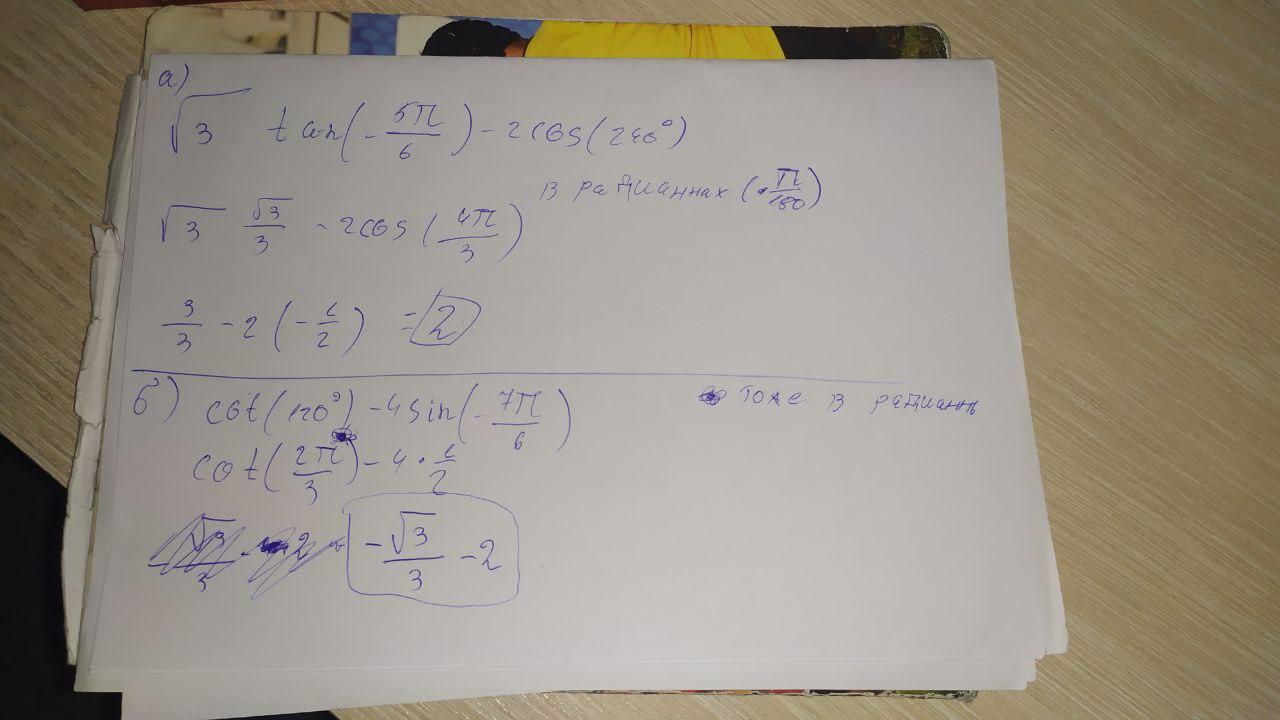 а)
√3 tan(-5π/6) - 2cos(240°)
в радианнах (·π/180)
√3 √3/3 - 2cos(4π/3)
3/3 - 2(-1/2) = 2
б) cot(120°) - 4sin(-7π/6)
тоже в радианнь
cot(2π/3) - 4·1/2
-√3/3 - 2